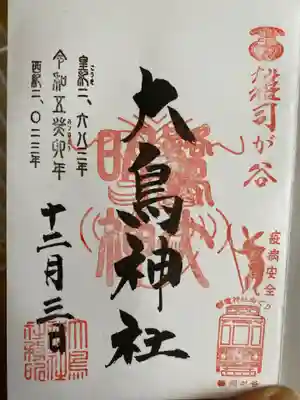 雑司が谷
疫病安全
大鳥神社
皇紀二、六八三年
令和五癸卯年
西紀二、〇二三年
十二月三日